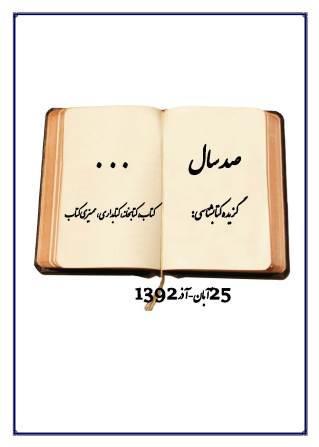 صد سال
...
گزیده کتابشناسی:
کتاب، کتابخانه، کتابداری، ممیزی کتاب
25 آبان-آذر 1392